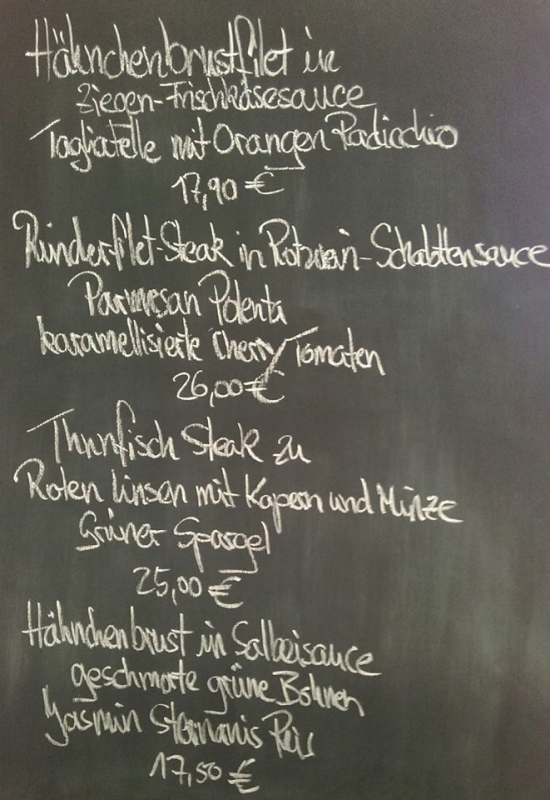 Hähnchenbrustfilet in
Ziegen-Frischkäsesauce
Tagliatelle mit Orangen Radicchio
17,90 €
Rinderfilet-Steak in Rotwein-Schalottensauce
Parmesan Polenta
karamellisierte Cherry Tomaten
26,00 €
Thunfisch Steak zu
Roten Linsen mit Kapern und Minze
Grüner Spargel
25,00 €
Hähnchenbrust in Salbeisauce
geschmorte grüne Bohnen
Yasmin Sternanis Reis
17,50 €